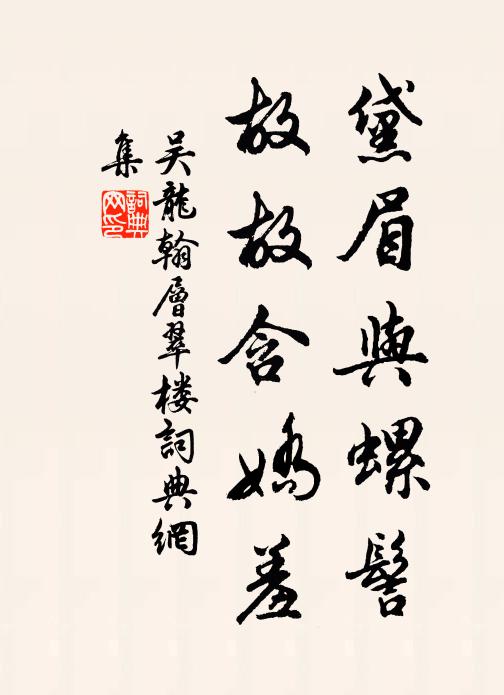 黛眉與螺髻
故故含嬌羞
吳龍翰層翠樓詞典網
集
詞典
网印